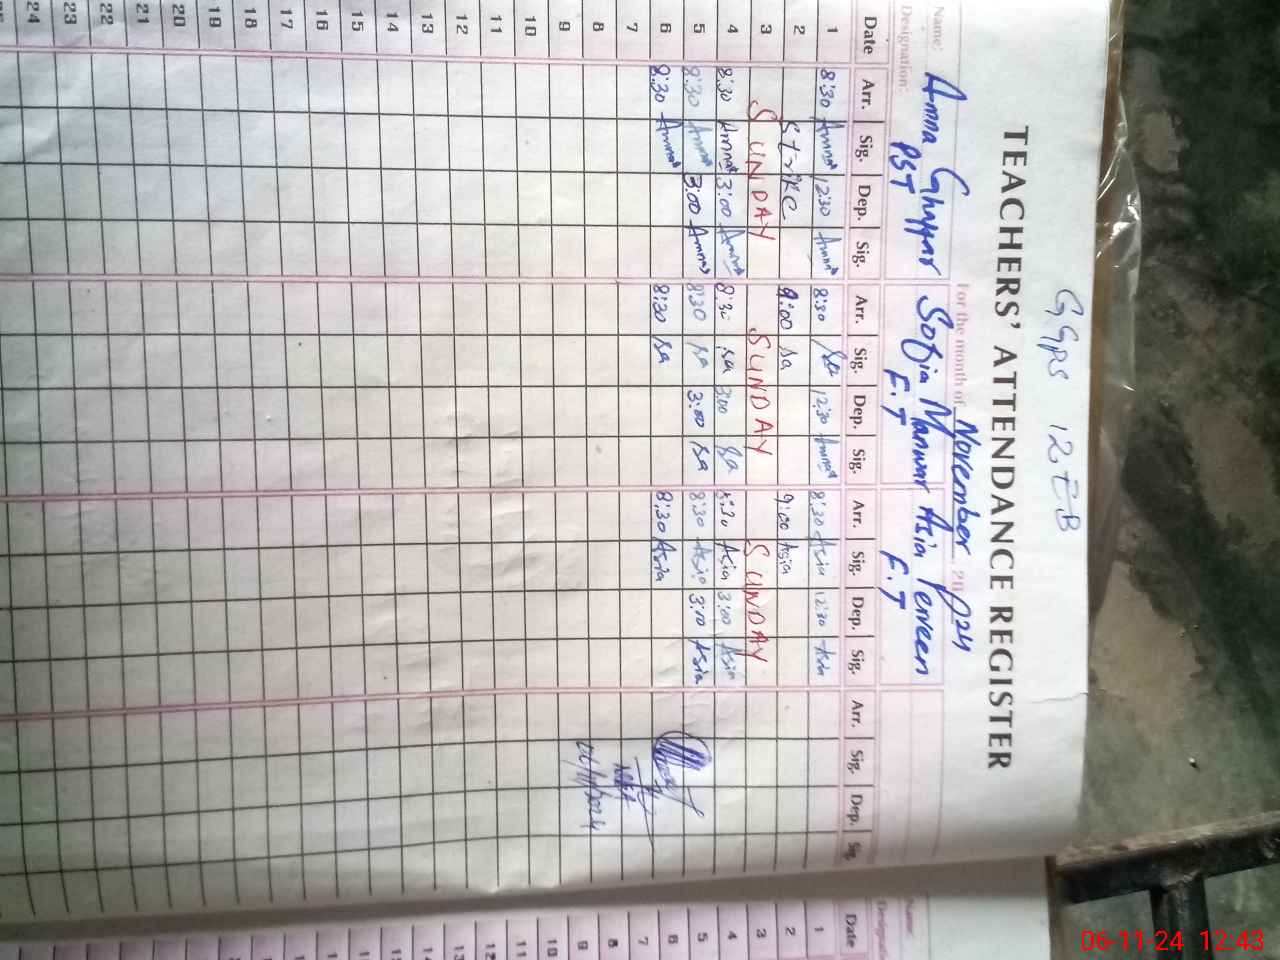 GGPS 12.EB
TEACHERS' ATTENDANCE REGISTER
For the month of November 2024
Name: Amna Ghaffar Sofia Manwar Asia Perveen
Designation: PST F.T F.T
Date Arr. Sig. Dep. Sig. Arr. Sig. Dep. Sig. Arr. Sig. Dep. Sig. Arr. Sig. Dep. Sig.
1 8:30 Amna 12:30 Amna 8:30 Sa 12:30 Amna 8:30 Asia 12:30 Asia
2 Strike 9:00 Sa 9:00 Asia
3 SUNDAY SUNDAY SUNDAY
4 8:30 Amna 3:00 Amna 8:30 Sa 3:00 Sa 8:30 Asia 3:00 Asia
5 8:30 Amna 3:00 Amna 8:30 Sa 3:00 Sa 8:30 Asia 3:00 Asia
6 8:30 Amna 8:30 Sa 8:30 Asia
7
8
9
10
11
12
13
14
15
16
17
18
19
20
21
22
23
24
Name:
Date
1
2
3
4
5
6
7
8
9
10
11
12
13
14
06-11-24 12:43